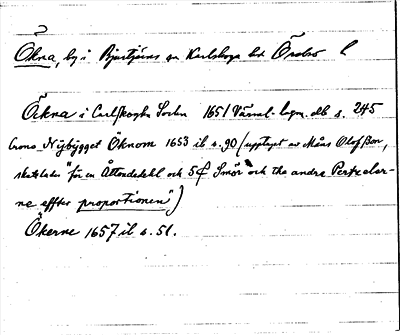 Ökna, by i Bjurtjärns sn Karlskoga hd Örebro l
Öckna i Carlskogha Sochn 1651 Värml. lagm. db s. 245
Crono Nÿbÿgget Öknom 1653 ib s. 90 (upptaget av Måns Olofsson,
skattlades "för en Åttondedehl och 5 Smör och the andre Pertzelar-
ne effter proportionen")
Ökerne 1657 ib s. 51.